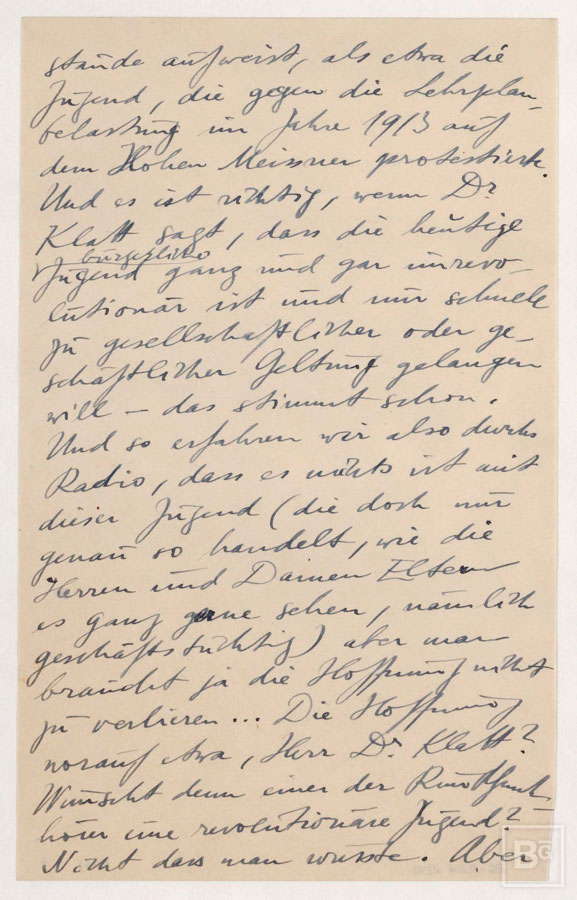 stände aufweist, als etwa die
Jugend, die gegen die Lehrplan-
belastung im Jahre 1913 auf
dem Hohen Meissner protestierte.
Und es ist richtig, wenn Dr.
Klatt sagt, dass die heutige
bürgerliche
Jugend ganz und gar unrevo-
lutionär ist und nur schnell
zu gesellschaftlicher oder ge-
schäftlicher Geltung gelangen
will – das stimmt schon.
Und so erfahren wir also durchs
Radio, dass es nichts ist mit
dieser Jugend (die doch nur
genau so handelt, wie die
Herren und Damen Eltern
es ganz gerne sehen, nämlich
geschäftstüchtig) aber man
braucht ja die Hoffnung nicht
zu verlieren... Die Hoffnung
worauf etwa, Herr Dr. Klatt?
Wünscht denn einer der Rundfunk-
hörer eine revolutionäre Jugend?
Nicht dass man wüsste. Aber
BG